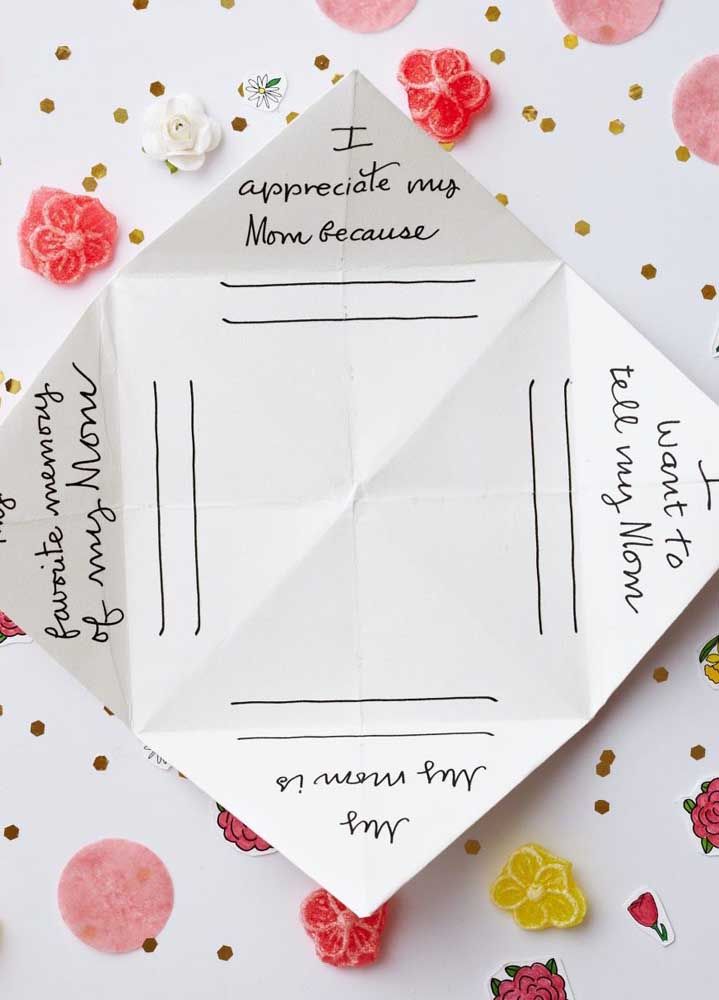 I
appreciate my
Mom because
I
want to
tell my Mom
My
My mom is
favorite memory
of my Mom